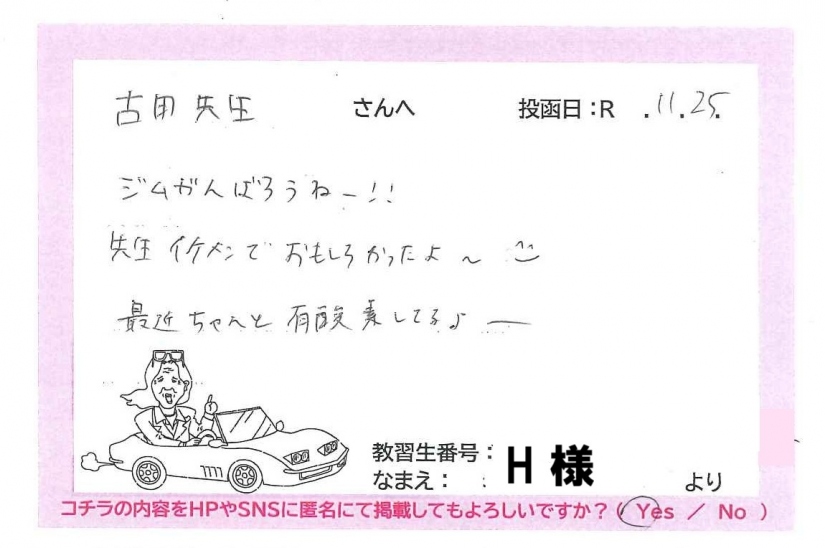 古田先生 さんへ 投函日：R .11.25.
ジムがんばろうねー!!
先生イケメンでおもしろかったよ～
最近ちゃんと有酸素してるよー
教習生番号：
なまえ： H 様 より
コチラの内容をHPやSNSに匿名にて掲載してもよろしいですか？( Yes ／ No )